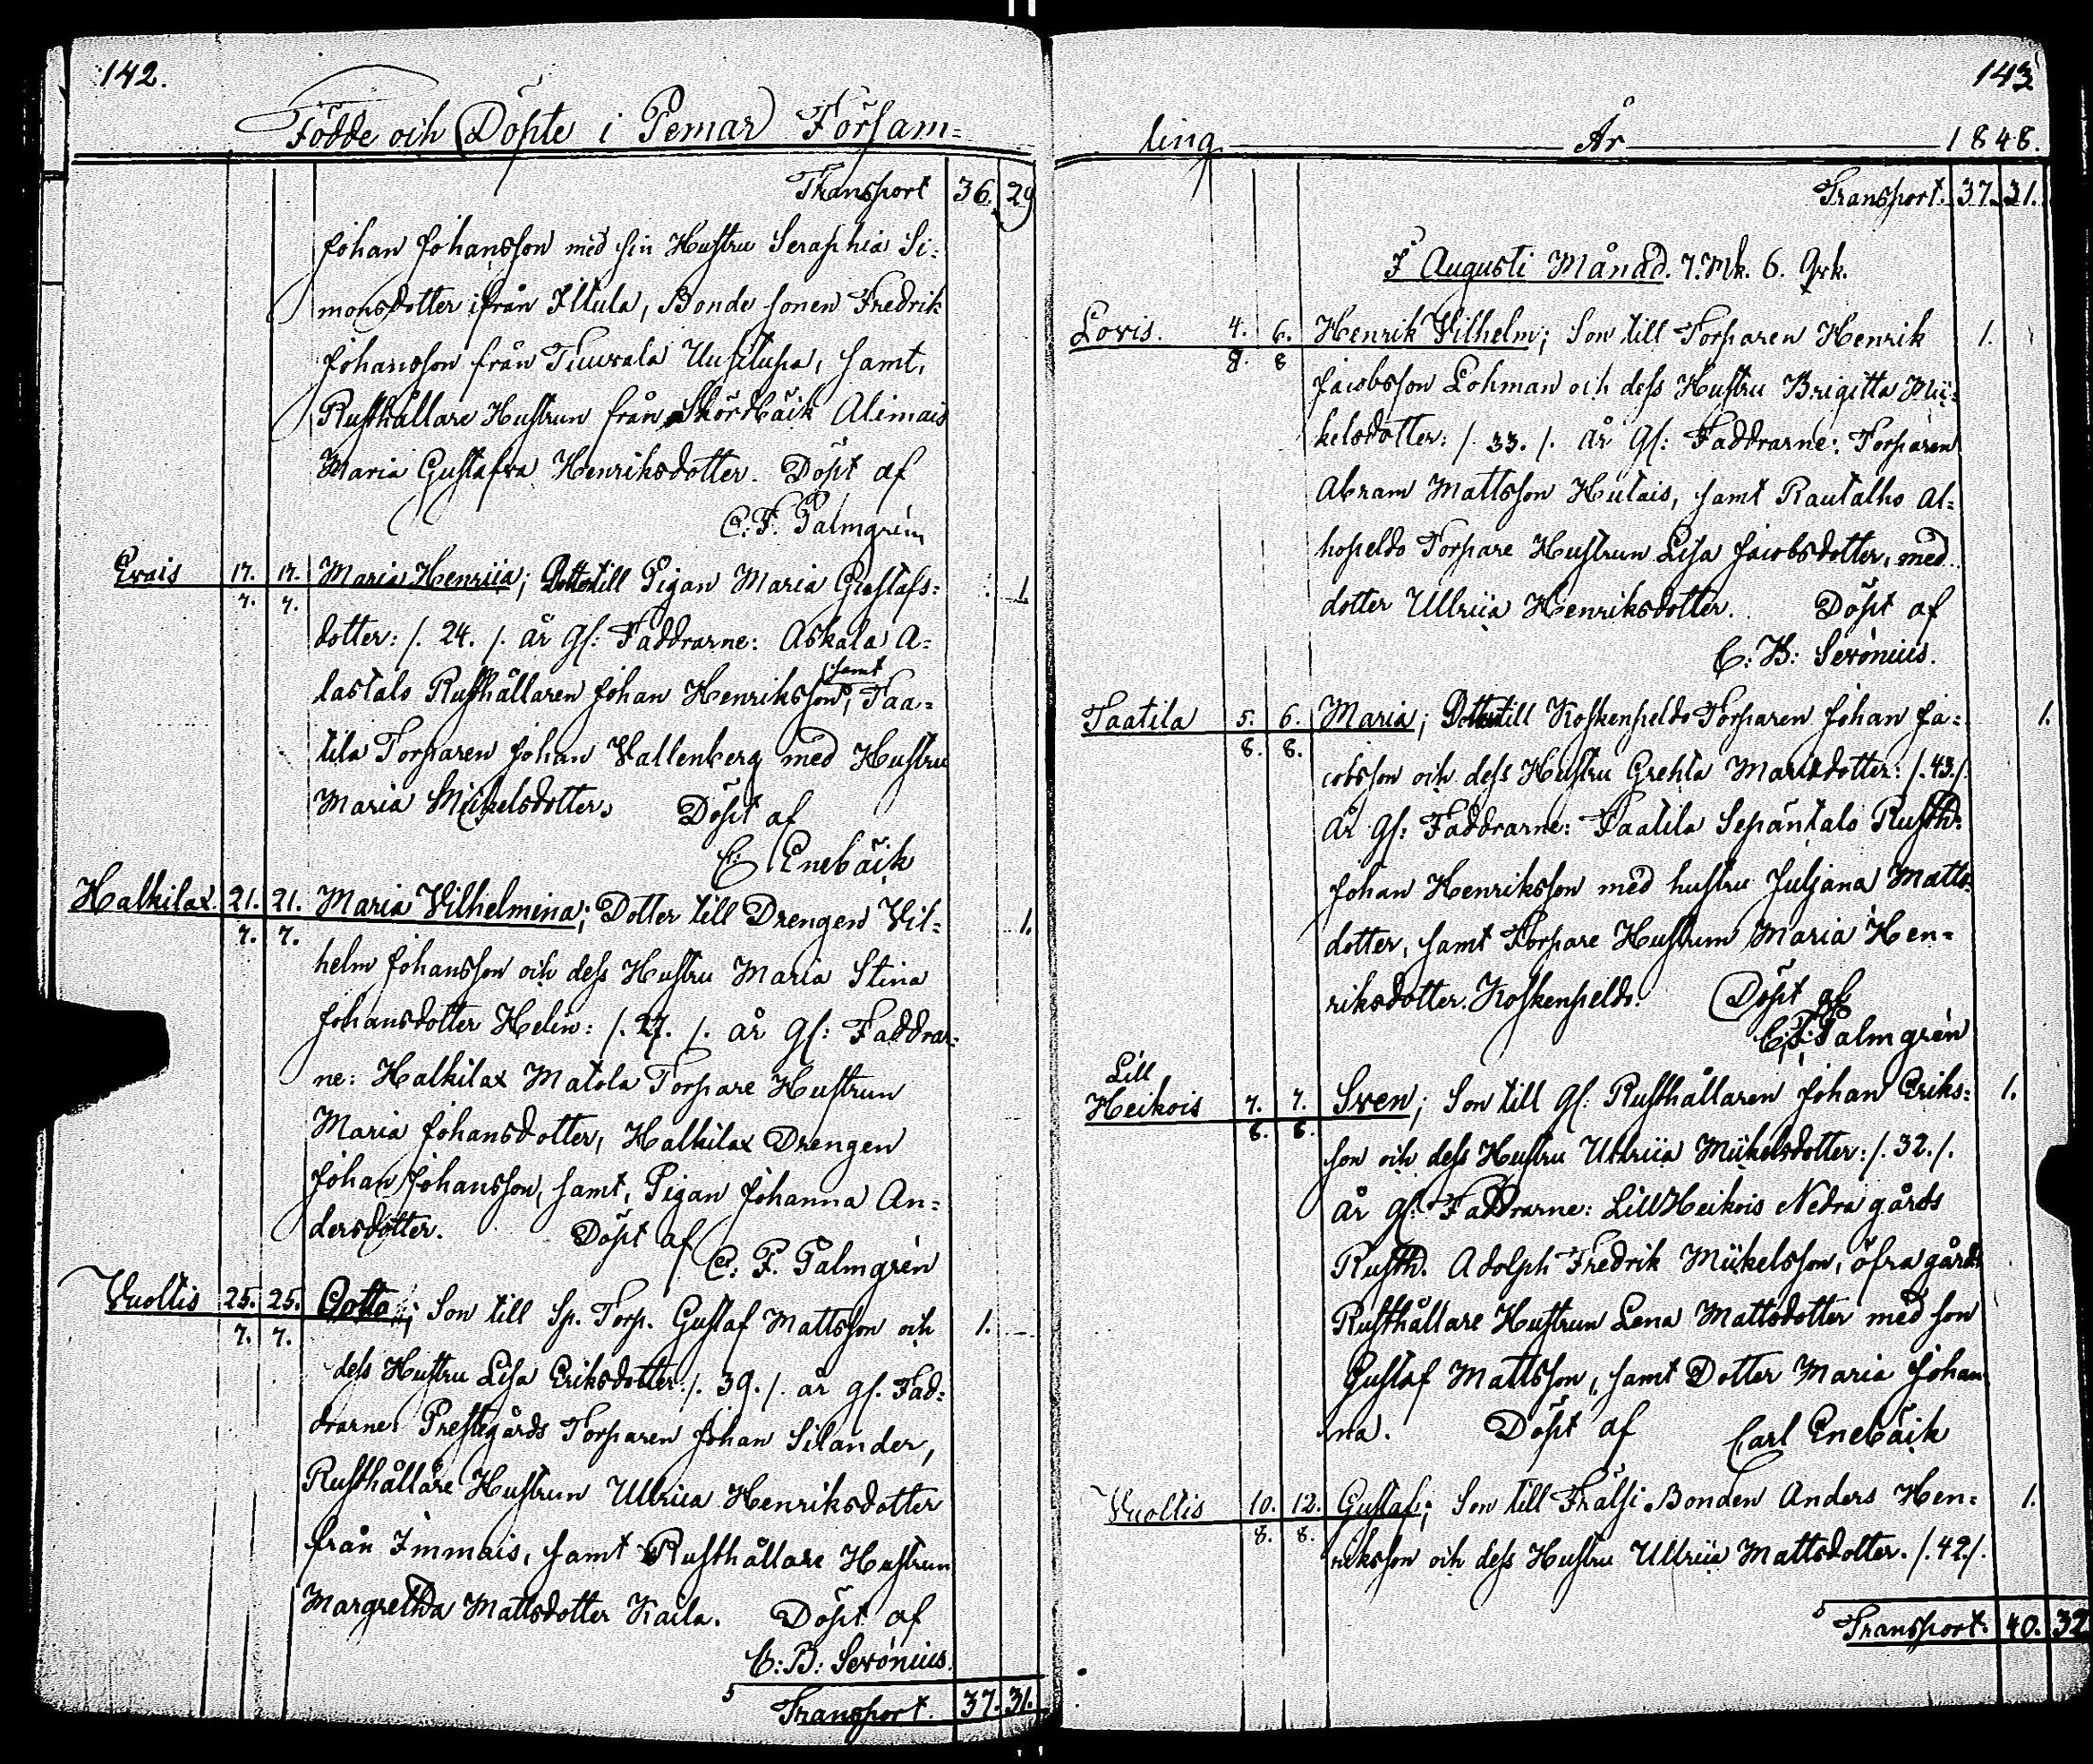 142.
Födde och Döpte i Pemar Församˍ=
Transport 36. 29
Johan Johansson med sin Hustru Seraphia Si=
monsdotter ifrån Iltula, Bonde sonen Fredrik
Johansson från Tuorala Uusitupa, samt,
Rusthållare Hustrun från Skördbäck Alimais
Maria Gustafva Henriksdotter. Döpt af
C. F. Palmgrén
Evais 17. 17. Maria Henrica; Dotter till Pigan Maria Gustafs= 1
7. 7.
dotter: /. 24. /. år gl: Faddrarne: Askala A=
samt
lastalo Rusthållaren Johan Henriksson, Taa=
tila Torparen Johan Vallenberg med Hustru
Maria Mickelsdotter. Döpt af
C. Enebäck
Halkilax 21. 21. Maria Vilhelmina; Dotter till Drengen Vil= 1.
7. 7.
helm Johansson och dess Hustru Maria Stina
Johansdotter Helin: /. 27. /. år gl: Faddrar=
ne: Halkilax Matola Torpare Hustrun
Maria Johansdotter, Halkilax Drengen
Johan Johansson, samt, Pigan Johanna An=
dersdotter. Döpt af
C. F. Palmgrén
Vuoltis 25. 25. Gotto; Son till Sp. Torp. Gustaf Mattsson och 1.
7. 7.
dess Hustru Lisa Eriksdotter: /. 39. /. år gl. Fad=
drarne: Prestegårds Torparen Johan Silander,
Rusthållare Hustrun Ullrica Henriksdotter
från Immais, samt Rusthållare Hustrun
Margretha Mattsdotter Kaila. Döpt af
C: B: Serónius.
Transport. 37. 31.
143
ling. År 1848.
Transport. 37. 31.
I Augusti Månad. 7. Mk. 6. Qvk.
Lovis. 4. 6. Henrik Vilhelm; Son till Torparen Henrik 1.
8. 8
Jacobsson Lohman och dess Hustru Brigitta Mic=
kelsdotter: /. 33. /. år gl: Faddrarne: Torparen
Abram Mattsson Hutais, samt Rautalho Al=
hopeldo Torpare Hustrun Lisa Jacobsdotter, med
dotter Ullrica Henriksdotter. Döpt af
C: B: Serónius.
Taatila 5. 6. Maria; Dotter till Koskenpeldo Torparen Johan Ja= 1.
8. 8.
cobsson och dess Hustru Grehta Mattsdotter: /. 43. /.
år gl: Faddrarne: Taatila Sepäntalo Rusth:
Johan Henriksson med hustru Juljana Matts=
dotter, samt Torpare Hustrun Maria Hen=
riksdotter. Koskenpeldo. Döpt af
C. F. Palmgrén
Lill
Heikois 7. 7. Sven; Son till gl: Rusthållaren Johan Eriks= 1.
8. 8.
son och dess Hustru Ullrica Mickelsdotter: /. 32. /.
år gl: Faddrarne: Lill Heikois Nedra gårds
Rusth. Adolph Fredrik Mickelsson, öfra gårds
Rusthållare Hustrun Lena Mattsdotter med son
Gustaf Mattsson, samt Dotter Maria Johan
na. Döpt af Carl Enebäck
Vuoltis 10. 12. Gustaf; Son till Frälse Bonden Anders Hen= 1.
8. 8.
riksson och dess Hustru Ullrica Mattsdotter. /. 42. /.
Transport. 40. 32